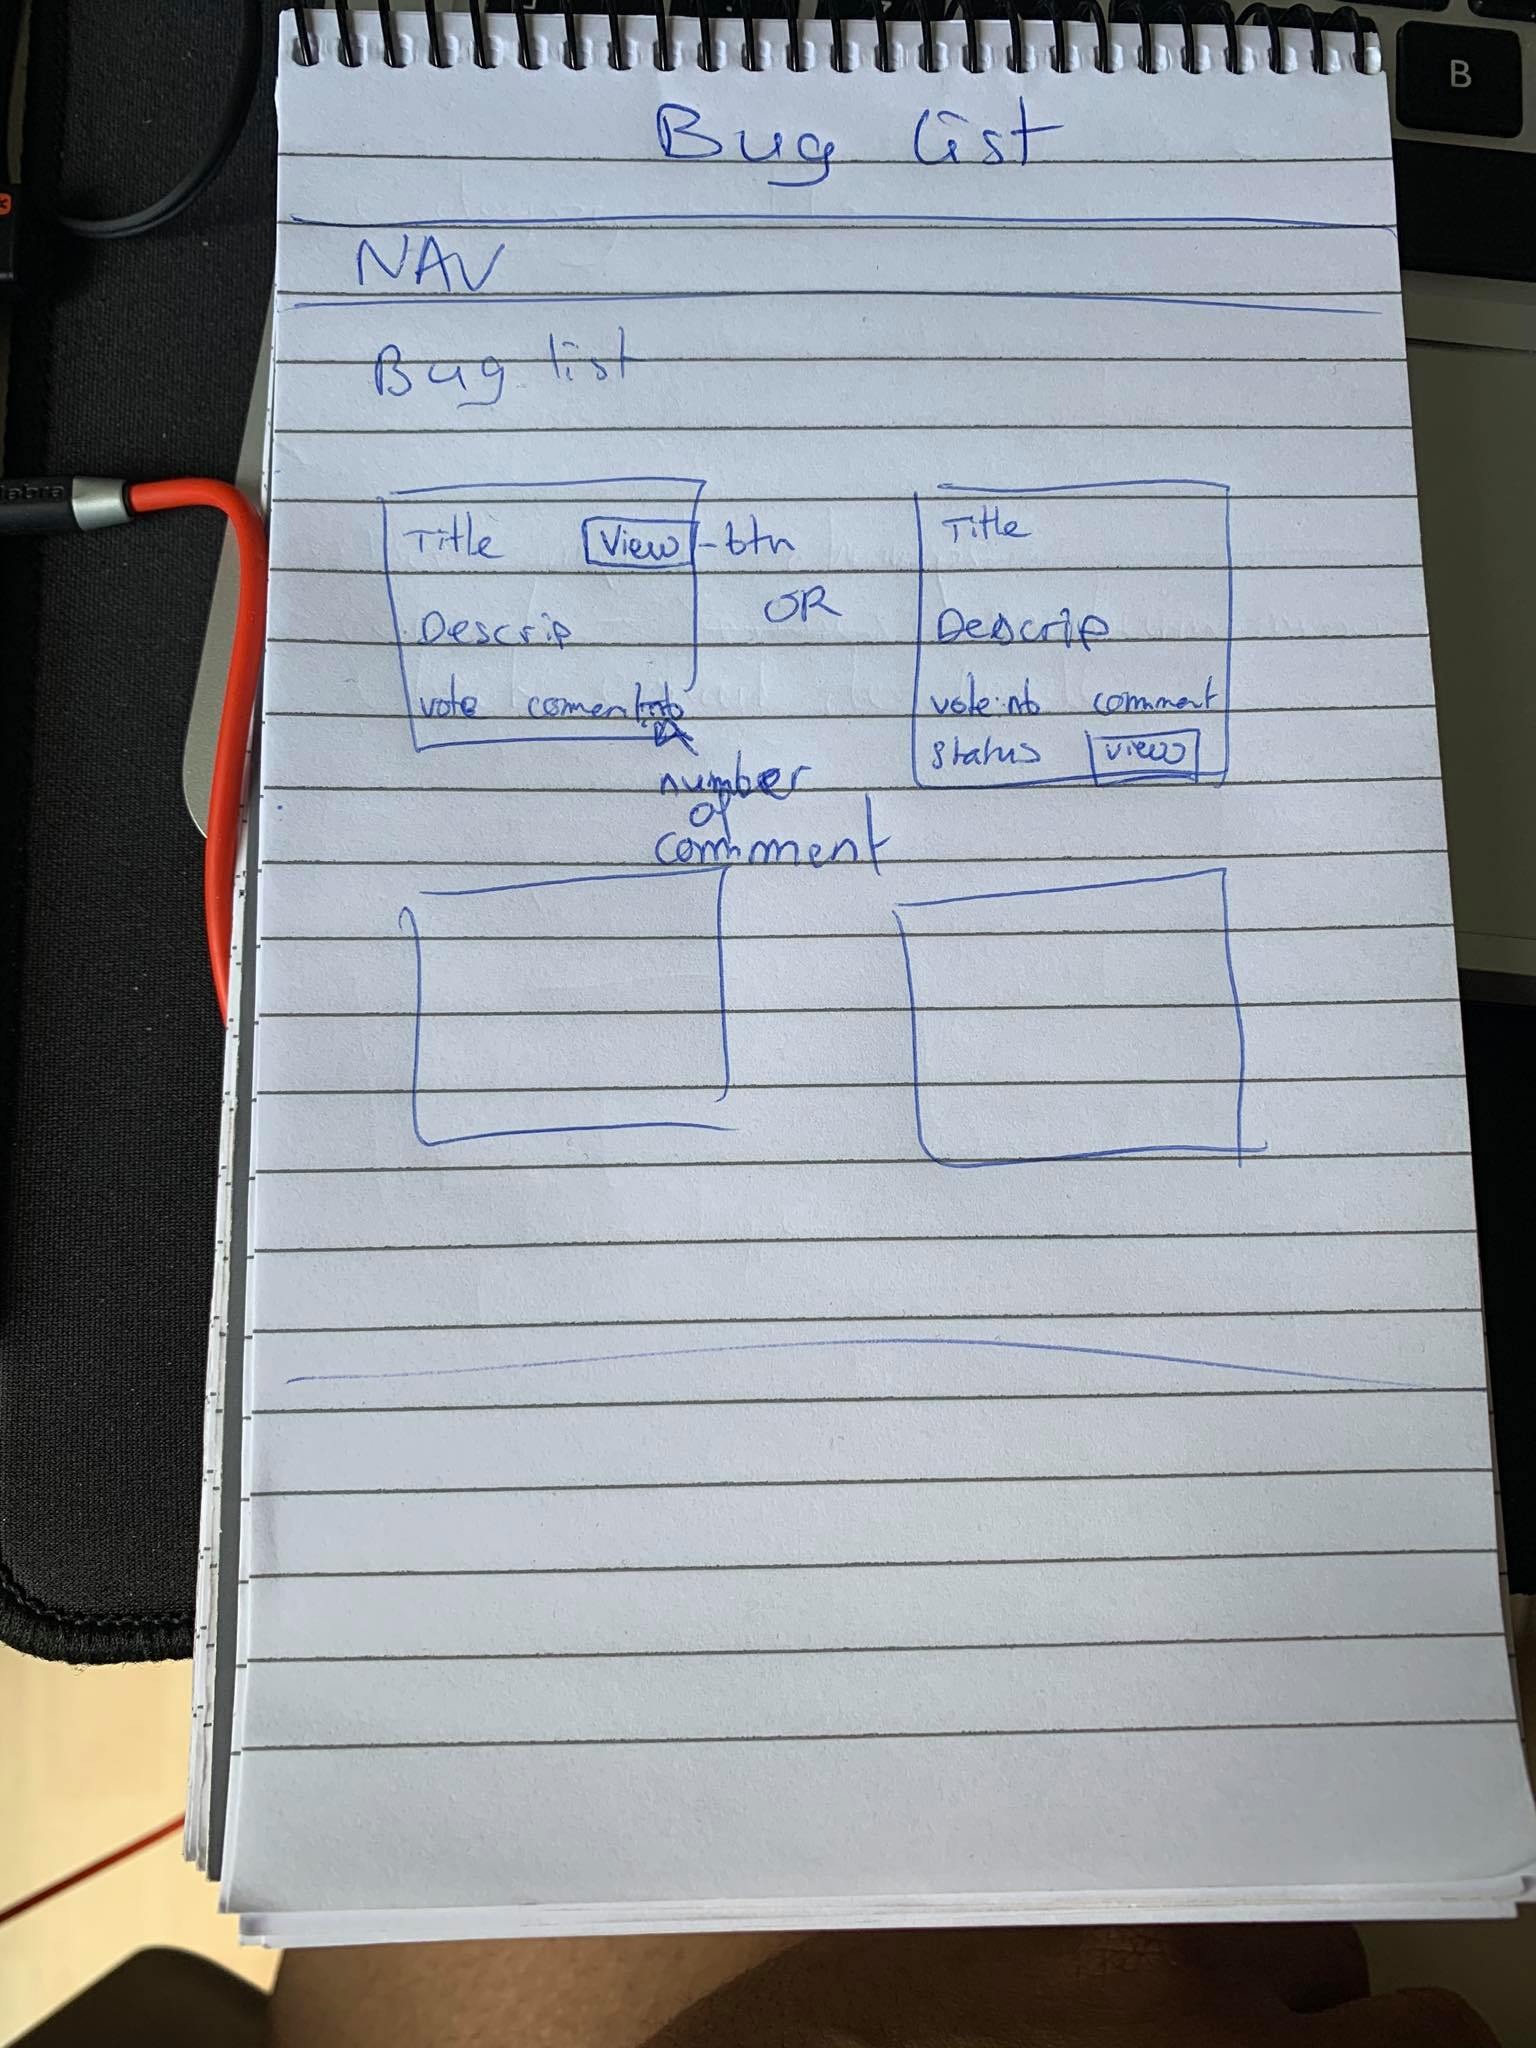 B
Bug list
NAV
Bug list
Title View -btn
Descrip
vote coment nb
OR
number
of
comment
Title
Descrip
vote:nb comment
status view
abra